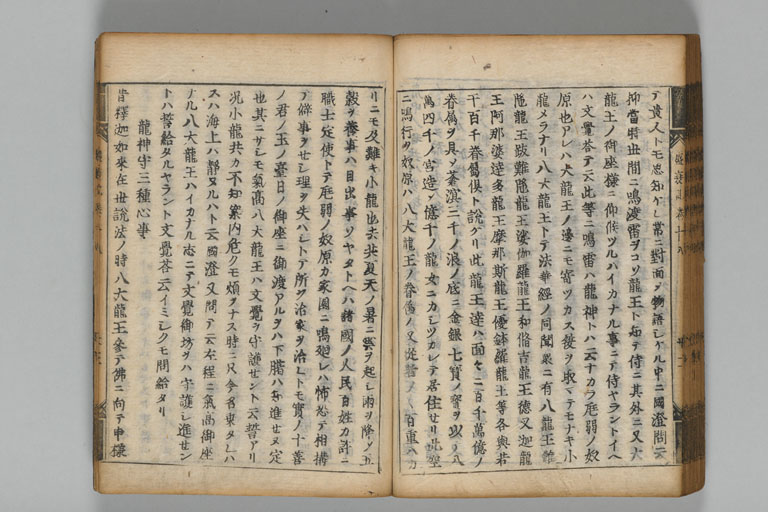 テ貴人トモ思知ケレ常ニ對面ノ物語シケル中ニ國澄問云
抑當時世間ニ鳴渡雷ヲコソ龍王ト知テ侍ニ其外ニ又大
龍王ノ御座様ニ仰候ツルハイカナル事ニテ侍ヤラントイヘ
ハ文覺答テ云此等ノ鳴雷ハ龍神トハ云ナカラ尫弱ノ奴
原也アレハ大龍王ノ邊ニモ寄ツカス履ヲ取マテモナキ小
龍メラナリ八大龍王トテ法華經ノ同聞衆ニ有八龍王難
陁龍王跋難陁龍王娑伽羅龍王和脩吉龍王德叉迦龍
王阿那婆達多龍王摩那斯龍王優鉢羅龍王等各與若
干百千眷屬倶ト説ケリ此龍王達ハ面々ニ百千萬億ノ
眷屬ヲ具シ蒼溟三千ノ浪ノ底ニ金銀七寶ノ宮ヲ
萬四千ノ宮造シ億千ノ龍女ニカシツカレテ居住セリ
ニ鳴行ク奴原ハ八大龍王ノ眷屬ノ又從者ノ
リニモ及難キ小龍也去共夏天ノ暑ニ祭ヲ起シ雨ヲ降シ五
穀ヲ養事ハ目出事ソヤタトヘハ諸國ノ人民百姓カ許ニ
職士定使トテ尫弱ノ奴原カ家園ニ鳴廻レハ怖恐テ相搆
テ僻事ヲセシ理ヲ失ハシトテ所ヲ治家ヲ治レトモ實ノ十善
ノ君ノ玉ノ臺日ノ御座ニ御渡アルヲハ下臈ハ知進セヌ定
也其ニサレモ氣高八大龍王ハ文覺ヲ守護セント云誓アリ
况小龍共カ不知案内危クモ煩ヲナス時ニ只今召東タレハ
スハ海上ハ靜ヌルハト云國澄又問テ云左程ニ氣高御座
ナル八大龍王ハイカナル志ニテ文覺御坊ヲハ守護シ進セン
トハ誓給タルヤラント文覺答云イミシクモ問給タリ
龍神守三種心事
昔釋迦如來在世說法ノ時八大龍王參テ佛ニ向テ申樣